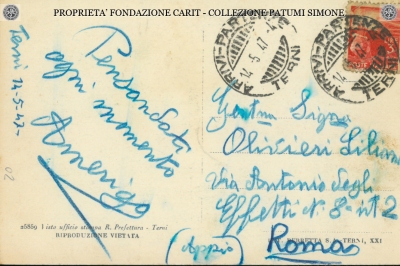 PROPRIETA' FONDAZIONE CARIT - COLLEZIONE PATUMI SIMONE
Terni 14-5-47-
Pensandoti
ogni momento
Amerigo
ARRIVI-PARTENZE
14.5.47
TERNI
ARRIVI-PARTENZE
TERNI
Gentma Signa
Olivieri Liliana
Via Antonio degli
Effetti N. 8 int 2
(Appio)
Roma
26859 Visto ufficio stampa R. Prefettura - Terni
RIPRODUZIONE VIETATA
TERNI, XXI
02